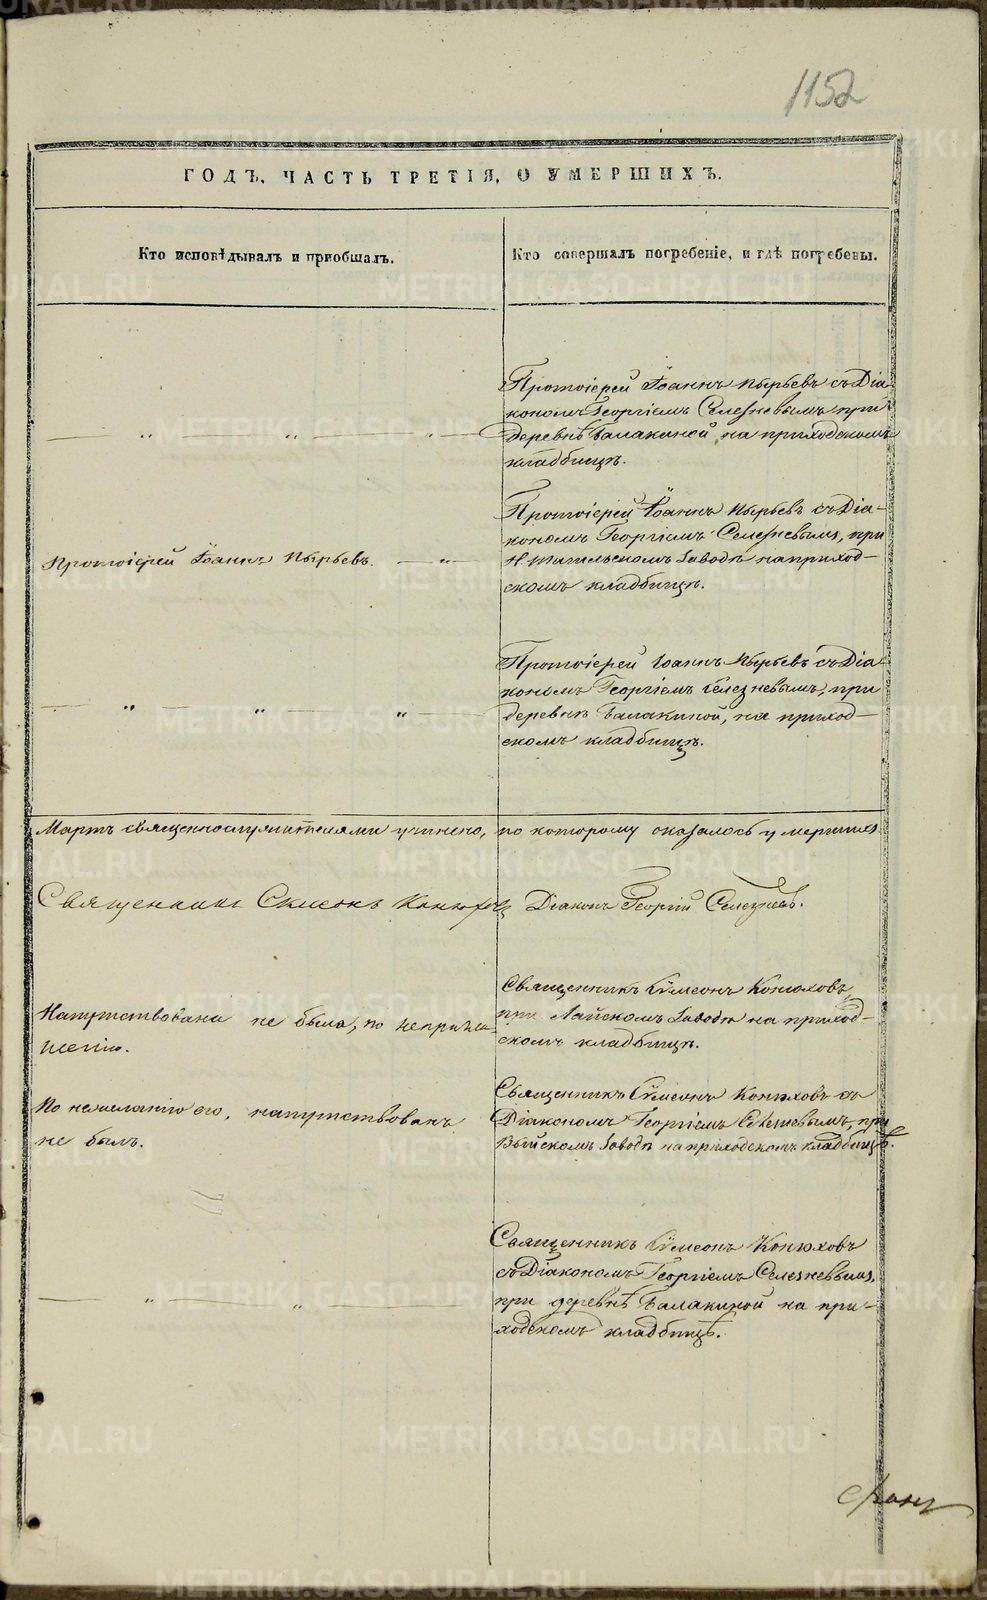 1152
ГОДЪ, ЧАСТЬ ТРЕТІЯ, О УМЕРШИХЪ.
Кто исповѣдывалъ и пріобщалъ.
Кто совершалъ погребеніе, и гдѣ погребены.
Протоіерей Іоаннъ Пырьевъ съ Діа
кономъ Георгіемъ Селезневымъ при
деревнѣ Балакиной на приходскомъ
кладбищѣ.
Протоіерей Іоаннъ Пырьевъ.
Протоіерей Іоаннъ Пырьевъ съ Діа-
кономъ Георгіемъ Селезневымъ, при
Н. Тагильскомъ Заводѣ на приход-
скомъ кладбищѣ.
Протоіерей Іоаннъ Пырьевъ съ Діа-
кономъ Георгіемъ Селезневымъ, при
деревнѣ Балакиной, на приход-
скомъ кладбищѣ.
Мартъ священнослужителями учинено, по которому оказалось умершихъ
Священникъ Симеонъ Конюховъ Діаконъ Георгій Селезневъ.
Напутствована не была, по непригла-
шенію.
Священникъ Сѵмеонъ Конюховъ,
при Лайскомъ Заводѣ на приход-
скомъ кладбищѣ.
По нежеланію его, напутствованъ
не былъ.
Священникъ Сѵмеонъ Конюховъ съ
Діакономъ Георгіемъ Селезневымъ, при
Выйскомъ Заводѣ на приходскомъ кладбищѣ.
Священникъ Сѵмеонъ Конюховъ
съ Діакономъ Георгіемъ Селезневымъ,
при деревнѣ Балакиной на при-
ходскомъ кладбищѣ.
METRIKI.GASO-URAL.RU